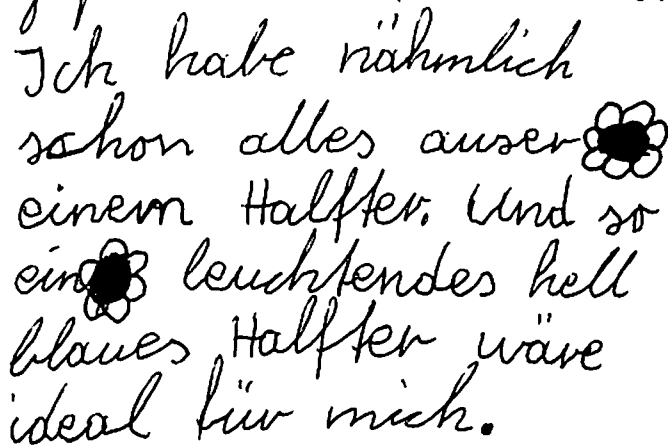 Ich habe nähmlich
schon alles auser
einem Halfter. Und so
ein leuchtendes hell
blaues Halfter wäre
ideal für mich.